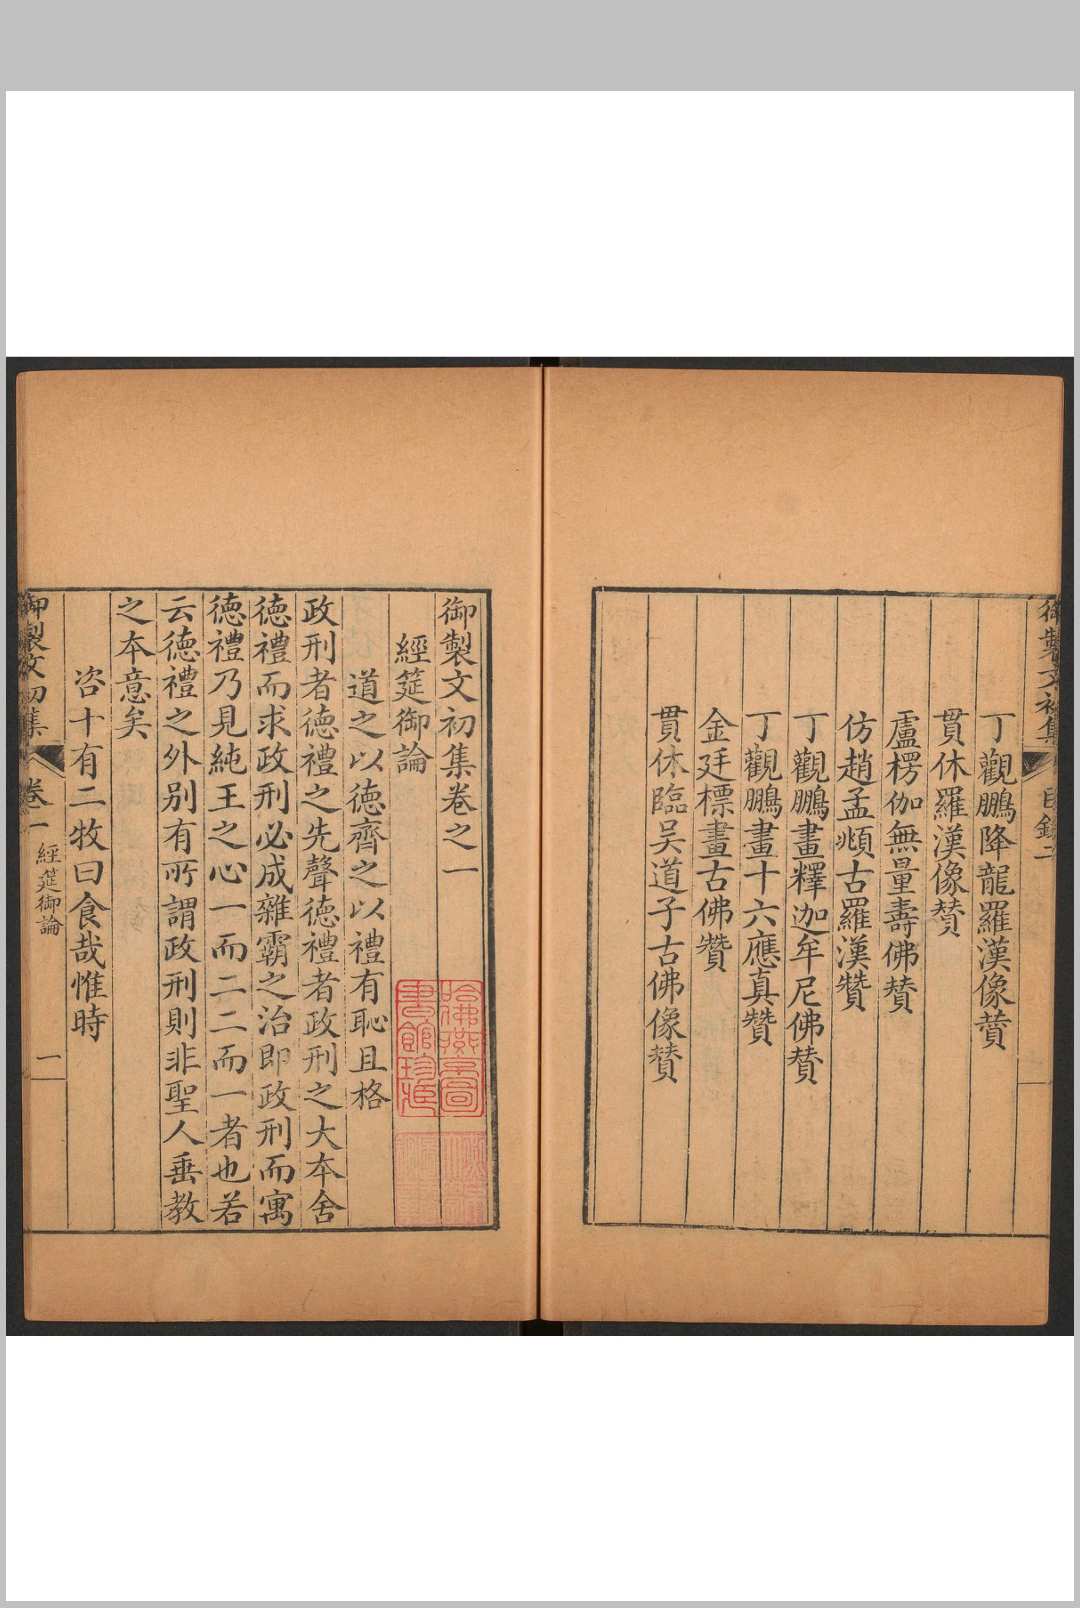 御製文初集
目錄二
丁觀鵬降龍羅漢像贊
貫休羅漢像贊
盧楞伽無量壽佛贊
仿趙孟頫古羅漢贊
丁觀鵬畫釋迦牟尼佛贊
丁觀鵬畫十六應真贊
金廷標畫古佛贊
貫休臨吳道子古佛像贊
御製文初集卷之一
經筵御論
道之以德齊之以禮有恥且格
政刑者德禮之先聲德禮者政刑之大本舍
德禮而求政刑必成雜霸之治即政刑而寓
德禮乃見純王之心一而二二而一者也若
云德禮之外別有所謂政刑則非聖人垂教
之本意矣
咨十有二牧曰食哉惟時
御製文初集
卷一
經筵御論
一
哈佛燕京圖
書館珍藏